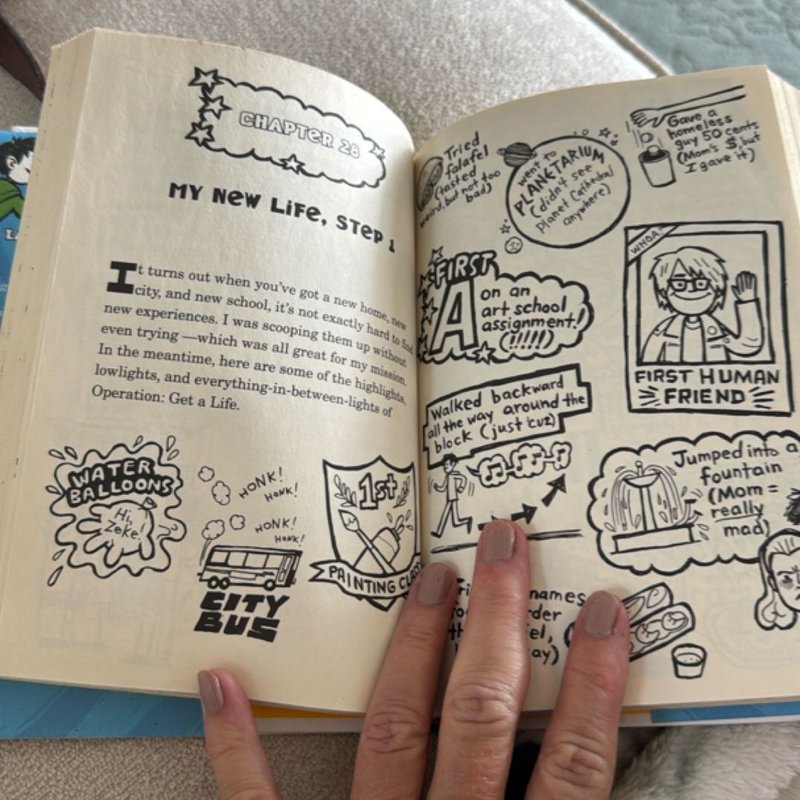 CHAPTER 28
MY NEW LIFE, STEP 1
It turns out when you've got a new home, new
city, and new school, it's not exactly hard to find
new experiences. I was scooping them up without
even trying —which was all great for my mission.
In the meantime, here are some of the highlights,
lowlights, and everything-in-between-lights of
Operation: Get a Life.
WATER
BALLOONS
Hi,
Zeke!
HONK!
HONK!
HONK!
HONK!
CITY
BUS
1st
PAINTING CLASS
Tried
falafel
(tasted
weird, but not too
bad)
went to
PLANETARIUM
(didn't see
planet Cathedral
anywhere)
Gave a
homeless
guy 50 cents
(Mom's $, but
I gave it)
FIRST
A on an
art school
assignment!
(!!!!!)
WHOA!
FIRST HUMAN
FRIEND
Walked backward
all the way around the
block (just 'cuz)
Jumped into a
fountain
(Mom =
really
mad)
names